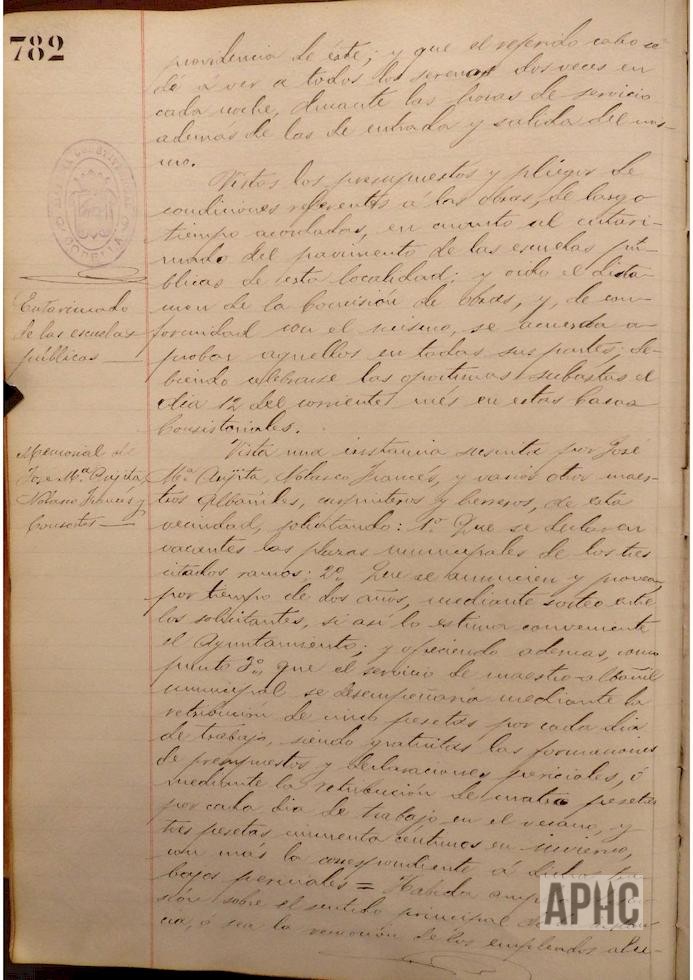 782
providencia de éste; y que el referido cabo
dé á ver a todos los serenos dos veces en
cada noche, durante las horas de servicio
además de las de entrada y salida del mis-
mo.
Vistos los presupuestos y pliegos de
condiciones referentes a las obras, de largo
tiempo acordadas, en cuanto al entari-
mado del pavimento de las escuelas pú-
blicas de esta localidad; y oido el dicta-
men de la Comisión de obras, y, de con-
formidad con el mismo, se acuerda a-
probar aquellos en todas sus partes; de-
biendo celebrarse las oportunas subastas el
dia 12 del corriente mes en estas Casas
Consistoriales.
Entarimado
de las escuelas
públicas
Memorial de
José Mª Anjita,
Nolasco Francés y
Consortes
Vista una instancia suscrita por José
Mª Anjita, Nolasco Francés, y varios otros maes-
tros Albañiles, carpinteros y herreros, de esta
vecindad, solicitando: 1º Que se declaren
vacantes las plazas municipales de los tres
citados ramos; 2º Que se anuncien y provean,
por tiempo de dos años, mediante sorteo entre
los solicitantes, si así lo estima conveniente
el Ayuntamiento; y ofreciendo ademas, como
punto 3º, que el servicio de maestro-albañil
municipal se desempeñaria mediante la
retribución de cinco pesetas por cada dia
de trabajo, siendo gratuitas las formaciones
de presupuestos y declaraciones periciales, ó
mediante la retribución de cuatro pesetas
por cada dia de trabajo en el verano, y
tres pesetas cincuenta céntimos en invierno,
con más la correspondiente á dichos tra-
bajos periciales = Habida amplia
sión sobre el sentido principal
cia, ó sea la remoción de los empleados
APHC